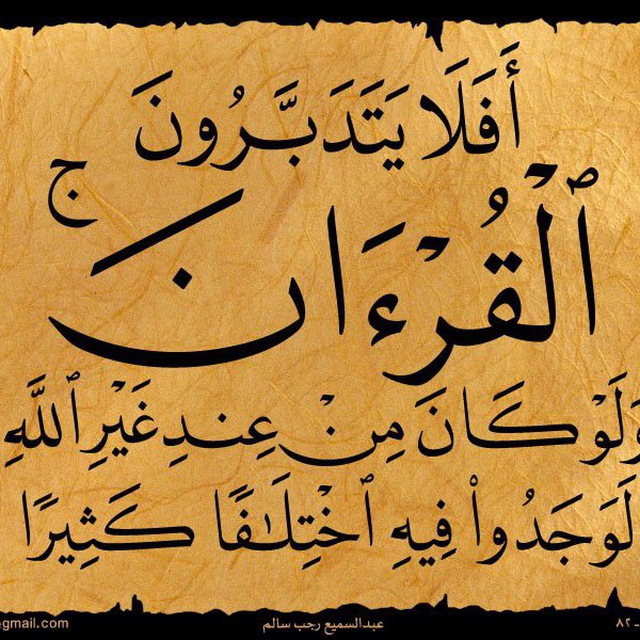 أَفَلَا يَتَدَبَّرُونَ
ٱلْقُرْءَانَ ۚ
وَلَوْ كَانَ مِنْ عِندِ غَيْرِ ٱللَّهِ
لَوَجَدُوا۟ فِيهِ ٱخْتِلَٰفًا كَثِيرًا
gmail.com
عبدالسميع رجب سالم
٨٢